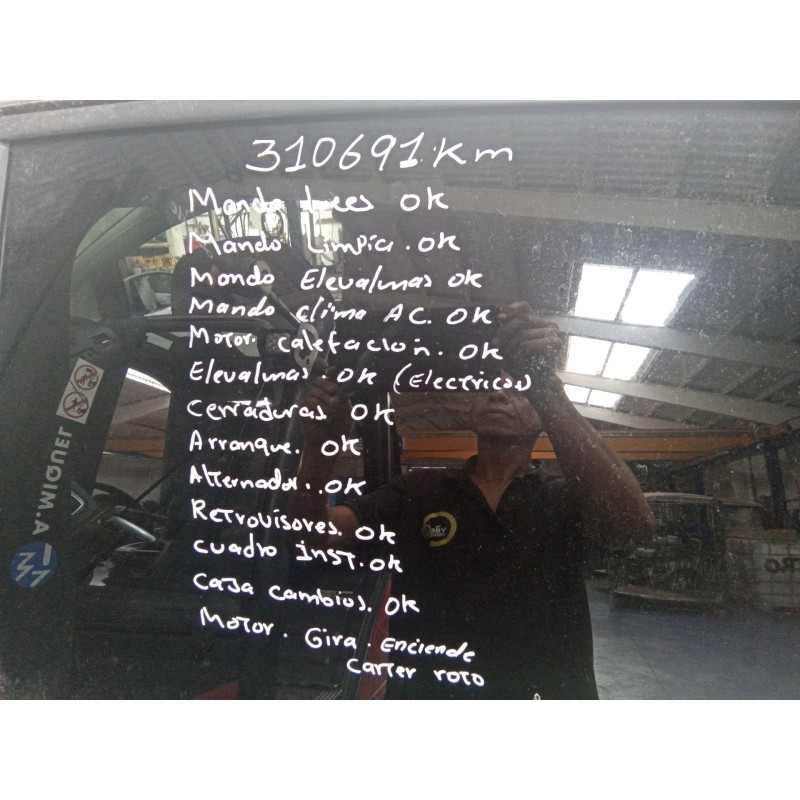 310691 Km
Mando Luces OK
Mando Limpia. OK
Mando Elevalunas OK
Mando Clima AC. OK
Motor Calefacion. OK
Elevalunas. OK (Electricos)
Cerraduras OK
Arranque. OK
Alternador. OK
Retrovisores. OK
Cuadro inst. OK
Caja Cambios. OK
Motor. Gira. Enciende
Carter roto
A.MIQUEL